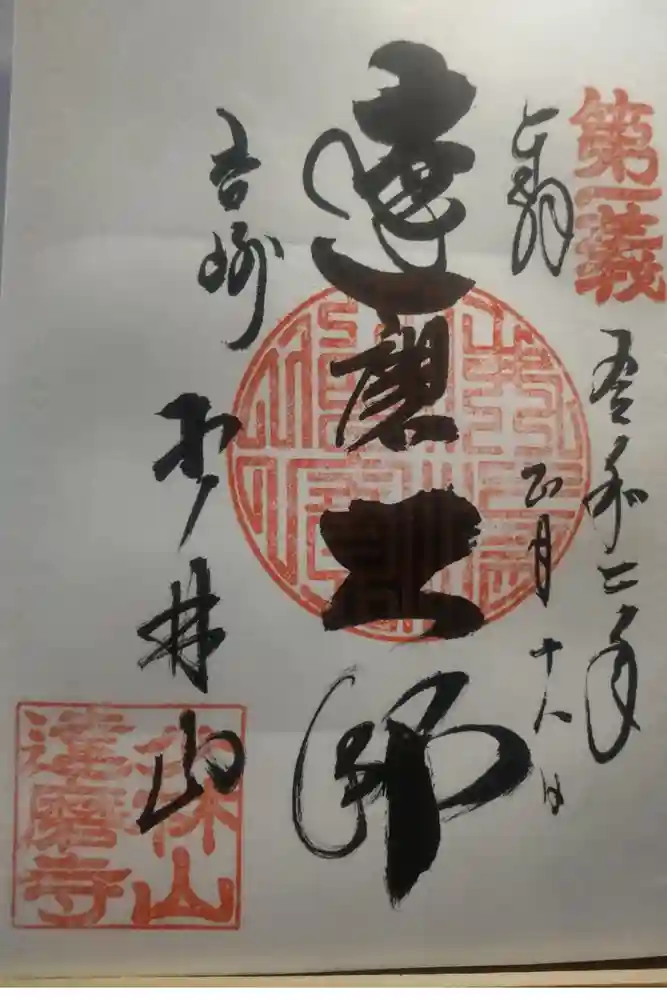 第一義
奉拝
令和二年
正月十八日
達磨大師
上州
少林山
少林山
達磨寺